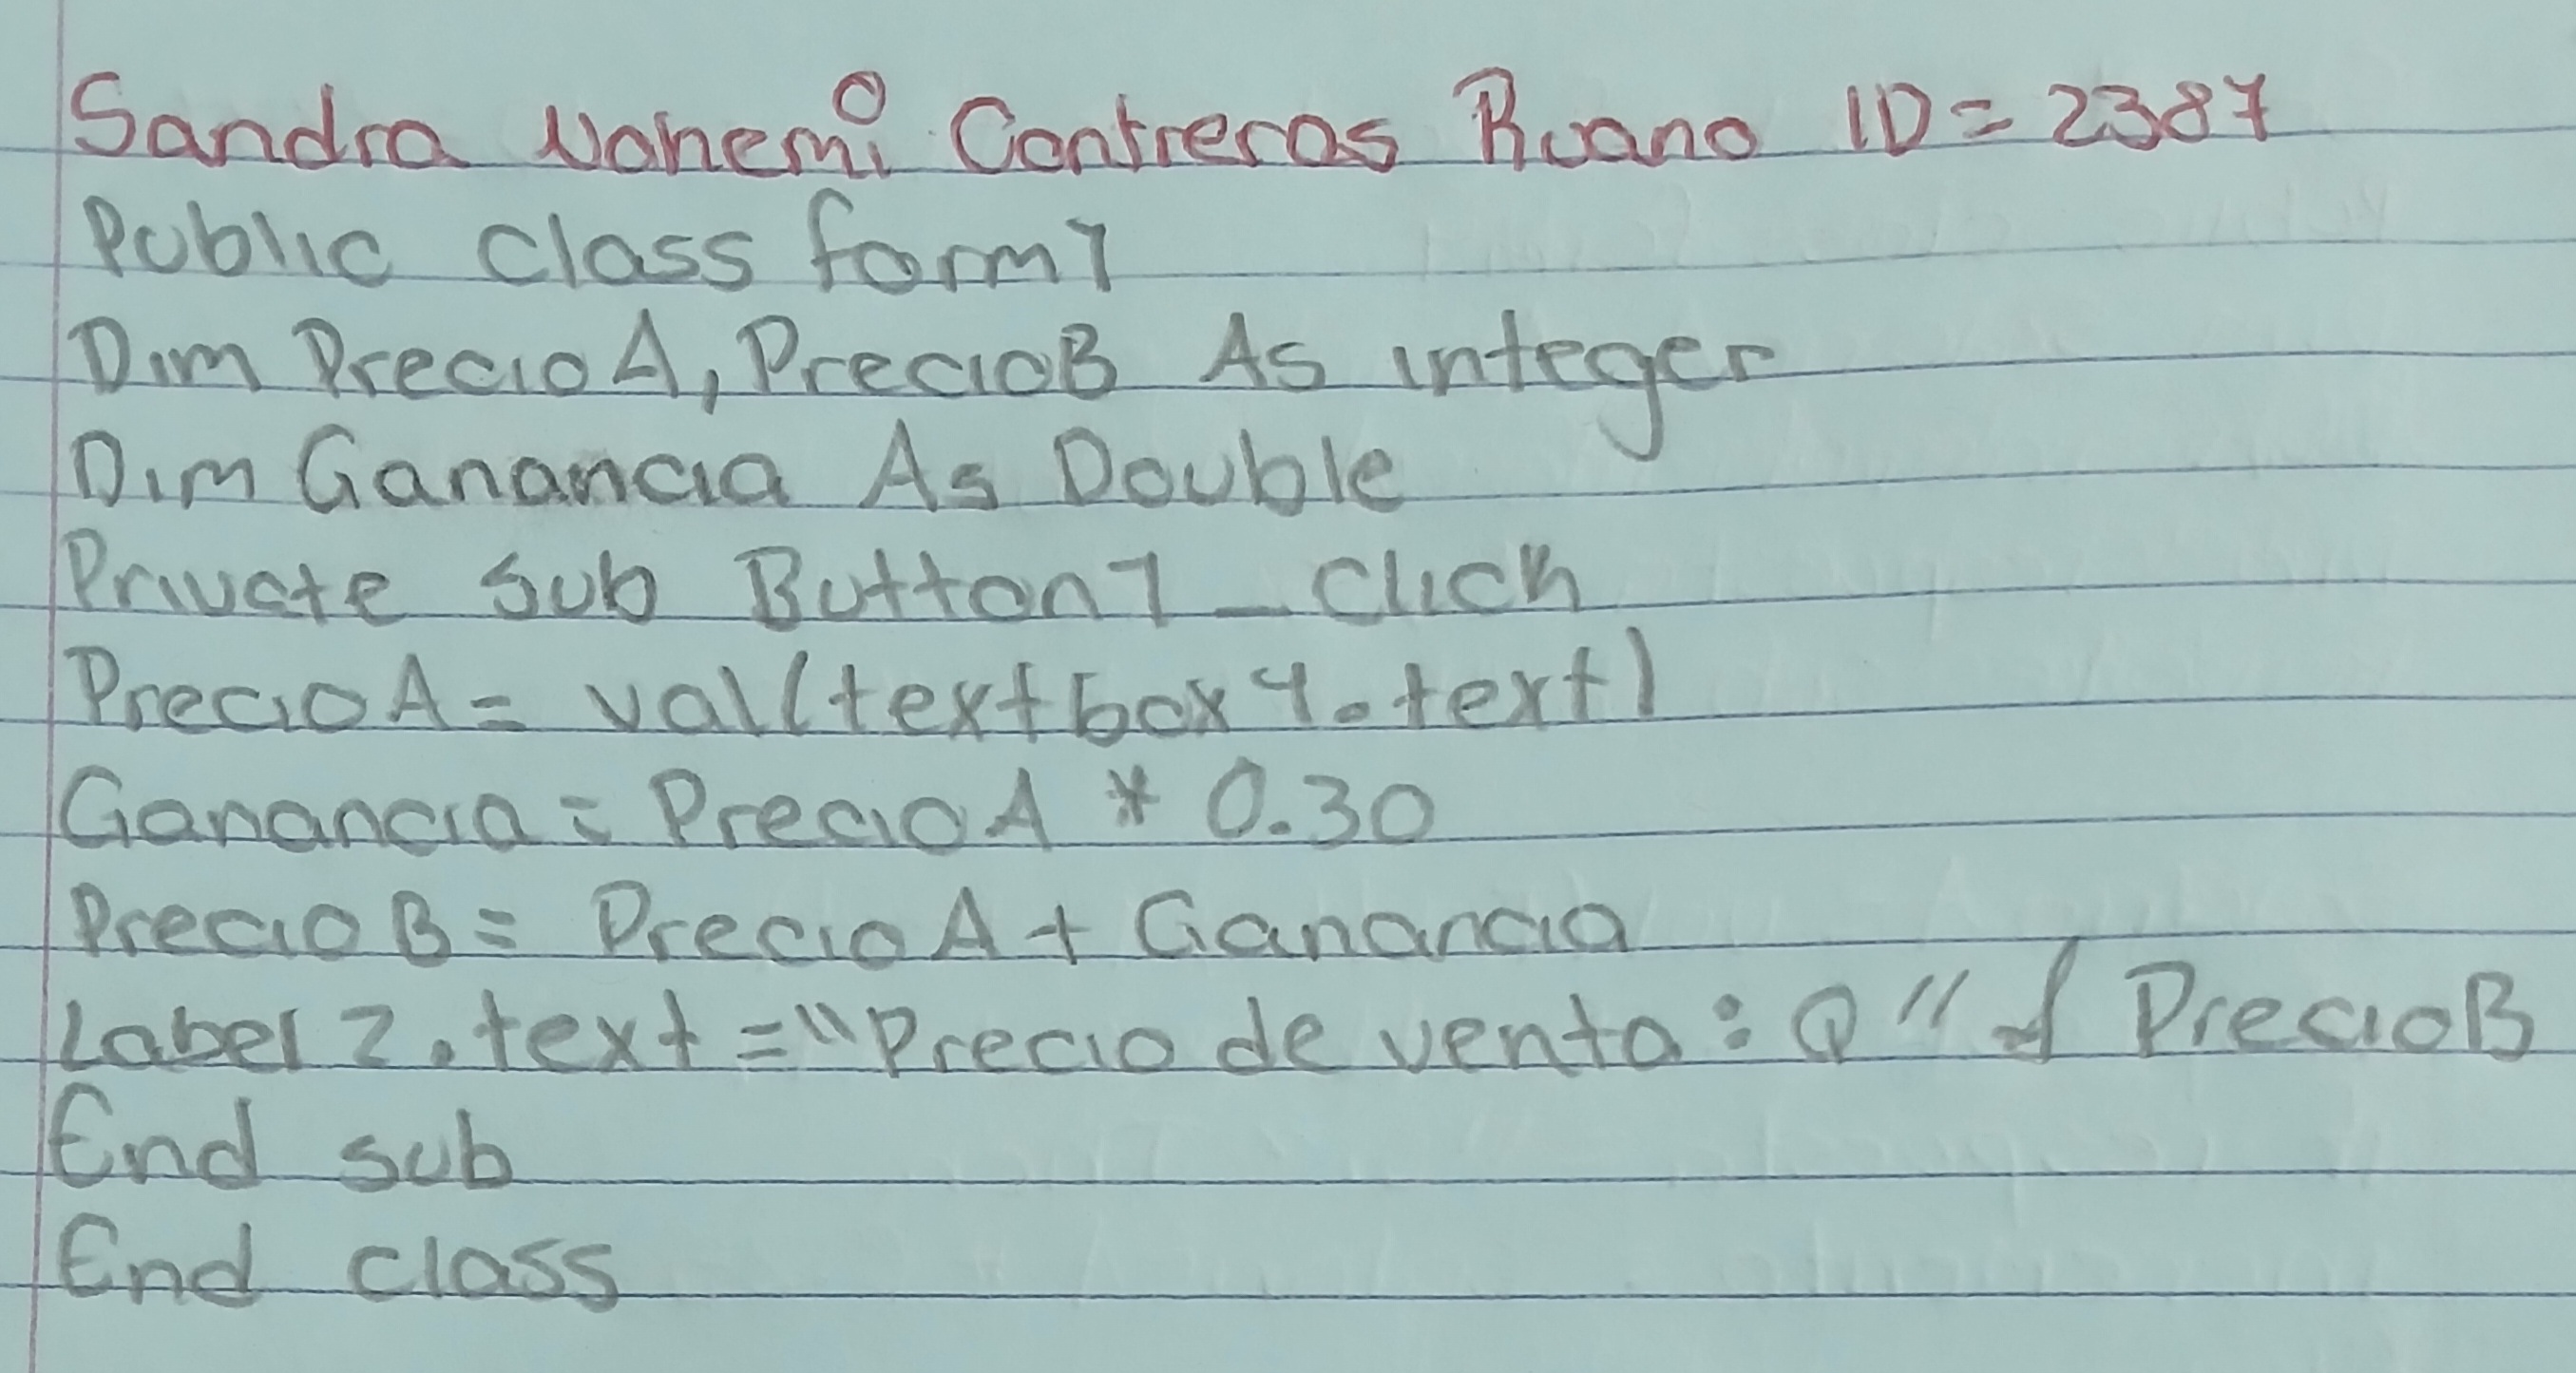 Sandra Nohemi Contreras Ruano ID = 2387
Public class form1
Dim Precio A, PrecioB As integer
Dim Ganancia As Double
Private sub Button1_Click
Precio A = val(textbox1.text)
Ganancia = Precio A * 0.30
Precio B = Precio A + Ganancia
Label2.text = "Precio de venta: Q" & PrecioB
End sub
End class